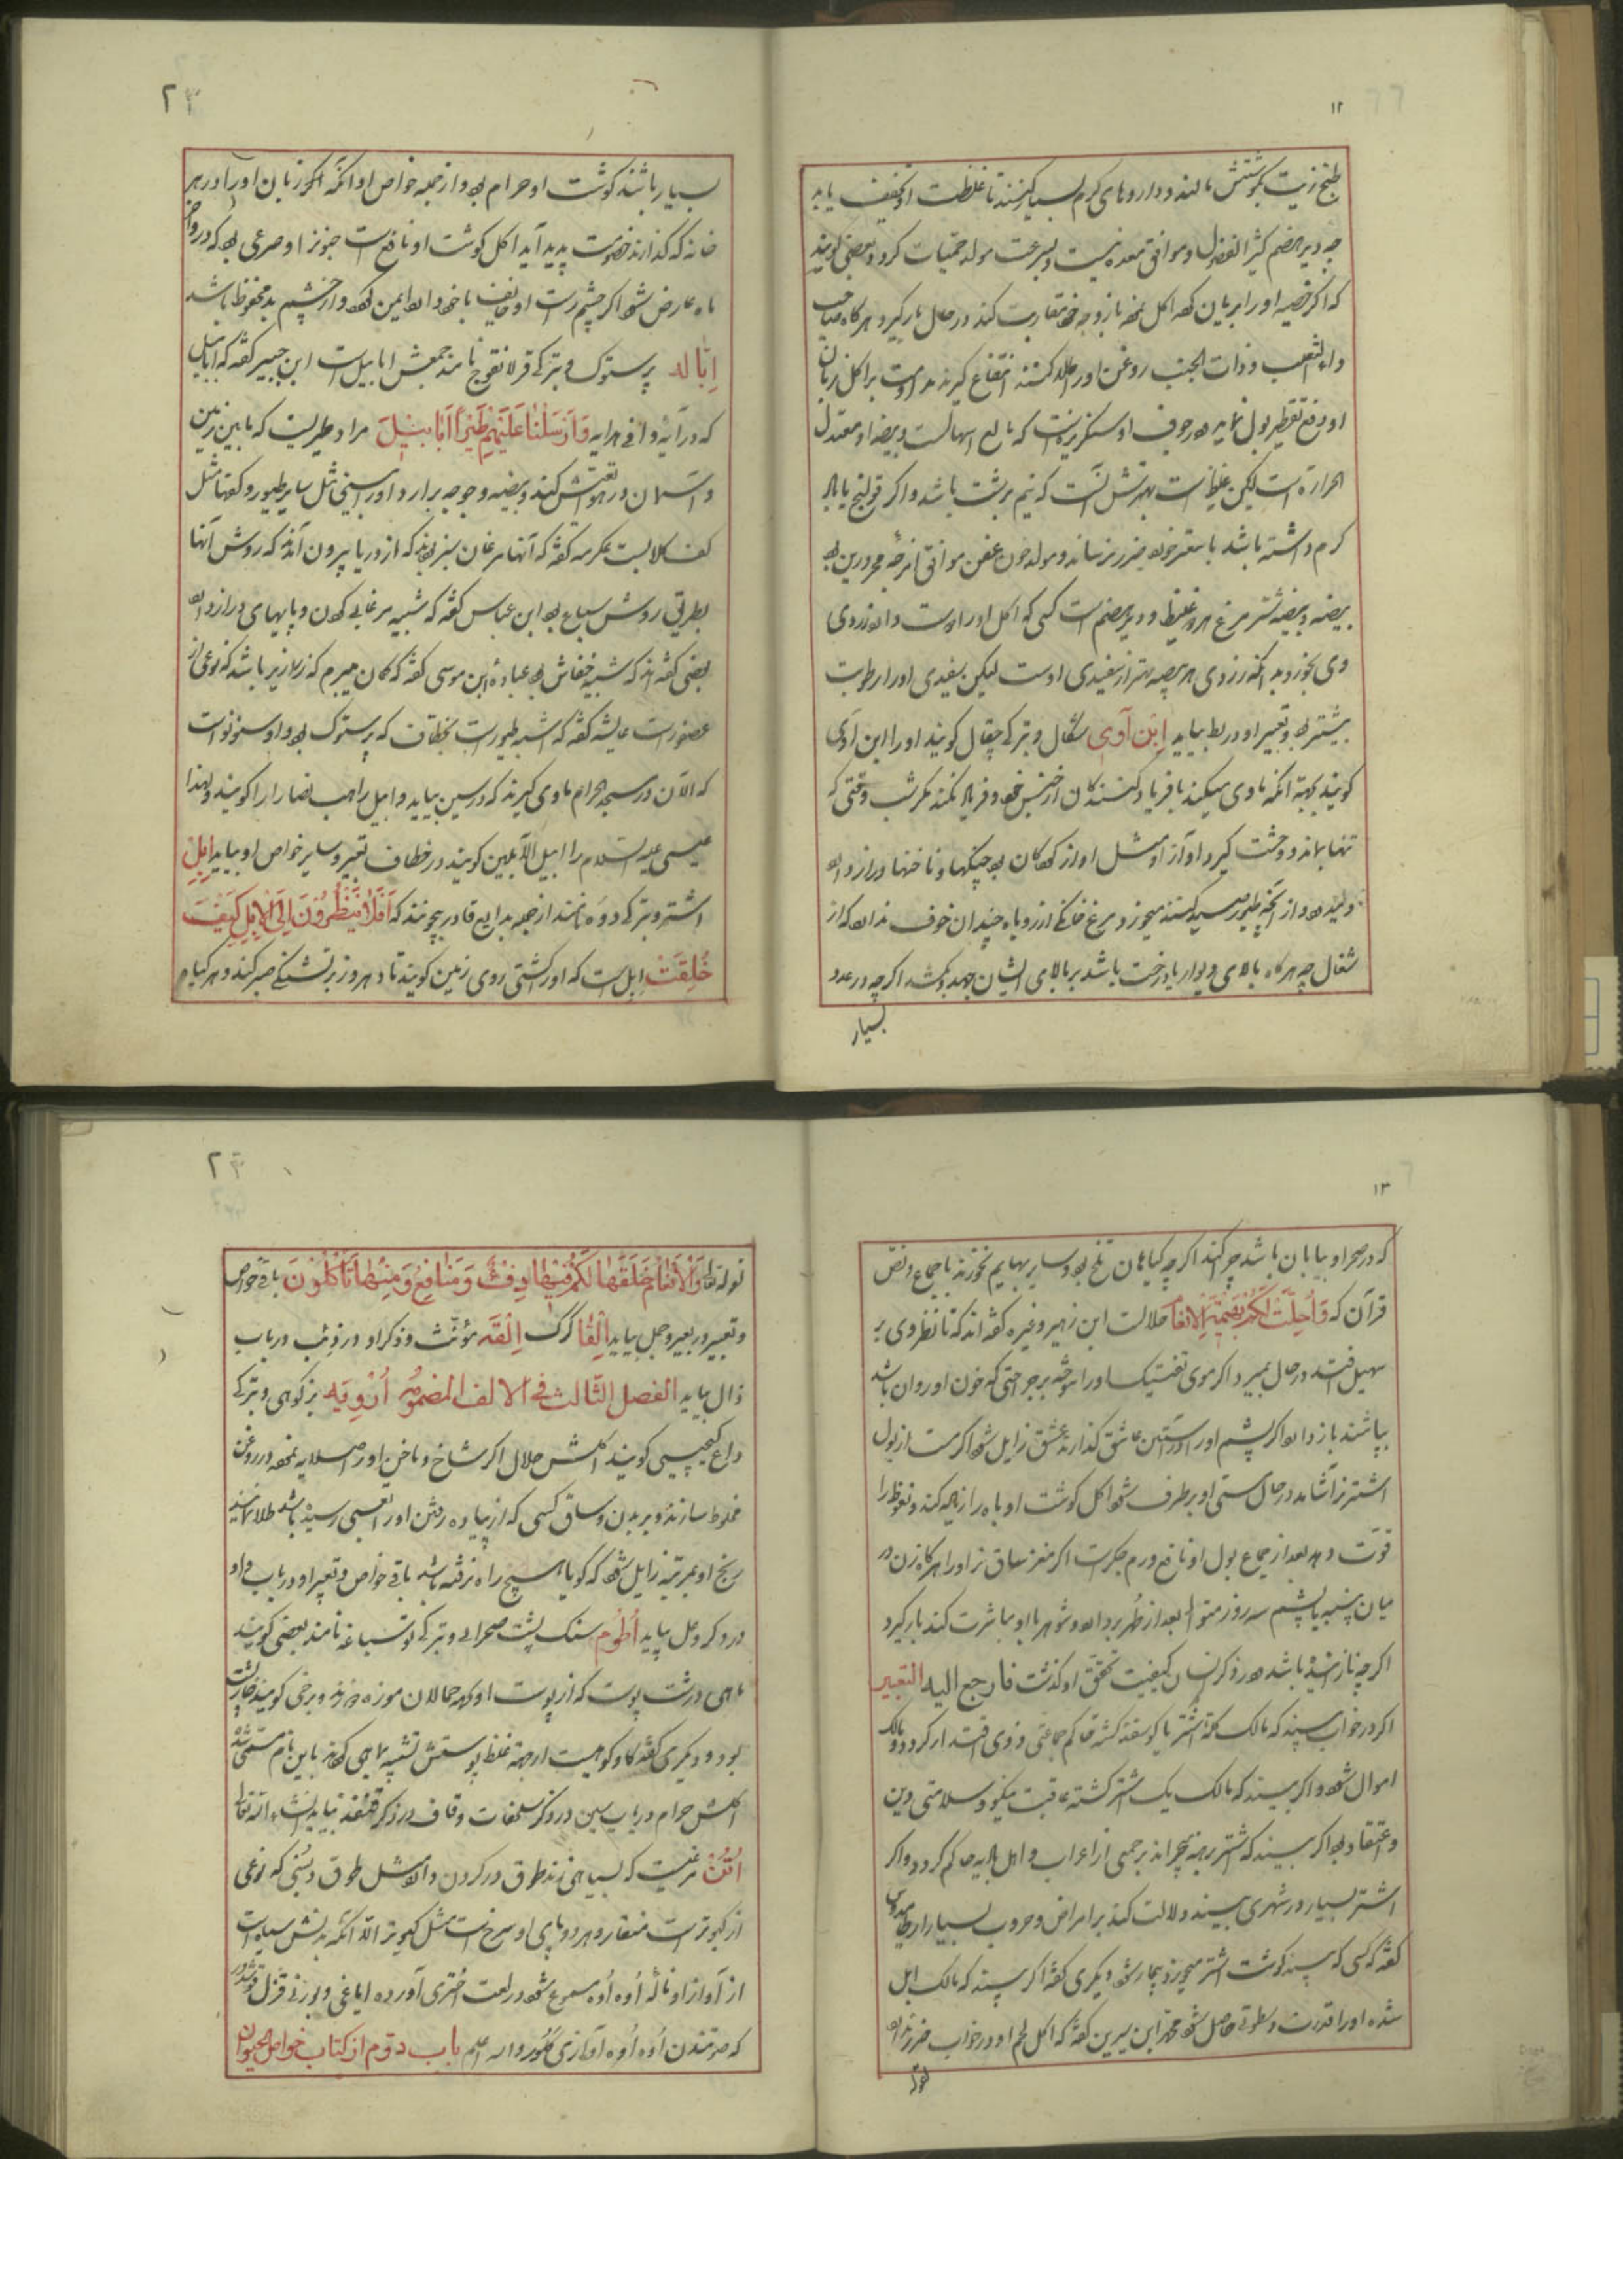 ۱۲
طبخ زیت بگوشتش مالند و داروهای گرم بسیار کنند تا غلظت او تخفیف یابد
چه دیر هضم کثیر الفضول و موافق معده نیست و بسرعت مولد حمیات گردد و بعضی گویند
که اگر خصیه او را بریان کرده اکل نموده با زوجه خود مقاربت کند در حال بار گیرد و هر گاه صاحب
داء الثعلب و ذات الجنب روغن او را طلا کنند انتفاع گیرند مداومت بر اکل زبان
او دفع تقطیر بول نماید و در جوف او سنگریزه‌ایست که مانع اسهالست و بیضه او معتدل
الحراره است لیکن غلیظ است بهترینش آنست که نیم برشت باشد و اگر قولنج یا باد
گرم داشته باشد با سعتر خورد ضرر نرساند و مولد خون عفن موافق امزجه محرورین بود
بیضه و بیضه شتر مرغ هر دو غلیظ و دیر هضم است کسی که اکل او را دوست دارد زردی
وی بخورد بدانکه زردی هر بیضه بهتر از سفیدی اوست لیکن سفیدی او را رطوبت
بیشتر بود و تعبیر او در بط بیاید اِبْن آوی شگال و بترکی چقال گویند او را ابن آوی
گویند بجهة آنکه ماوی میکند با فریاد کنندگان از جنس خود و فریاد نکند مگر شب وقتی که
تنها بماند و وحشت گیرد آواز او مثل آواز کودکان بود چنگها و ناخنها دراز دارد
و از آنچه طیور صید کنند میخورد و مرغ خانگی از روباه چندان خوف ندارد که از
شغال چه هر گاه بالای دیوار یا درخت باشد بر بالای ایشان جهد و بکشد اگر چه در عدد
بسیار
۲۳
بسیار باشند گوشت او حرام بود و از جمله خواص او آنکه اگر زبان او را در هر
خانه که گذارند خصومت پدید آید اکل گوشت او نافع است جنون را و صرعی بود که در اواخر
ماه عارض شود اگر چشم راست او خایف با خود دارد ایمن گردد و از چشم بد محفوظ باشد
اِبّاله پرستوک و بترکی قرلانقوج نامند جمعش ابابیل است ابن جبیر گفته که ابابیل
که در آیهٔ وافی هدایه فَاَرْسَلْنا عَلَیْهِمْ طَیْراً اَبابیلَ مراد طیریست که مابین زمین
و آسمان در هوا تعیّش کند و بیضه و جوجه برآرد و او را بینی مثل سایر طیور و کفها مثل
کف کلابست عکرمه گفته که آنها مرغان سبز بودند که از دریا بیرون آمدند که روش آنها
بطریق روش سباع بود ابن عباس گفته که شبیه مرغابی گردن و پایهای دراز دارد
بعضی گفته‌اند که شبیه خفاش بود عبادهٔ ابن موسی گفته که گمان میبرم که زرازیر باشد که نوعی از
عصفورست عایشه گفته که اشبه طیورست بخطاف که پرستوک بود و او سنونوست
که الآن در مسجد الحرام ماوی گیرند که در سین بیاید و ابیل راهب نصارا را گویند و لهذا
عیسی علیه السلام را ابیل الآبلین گویند در خطاف تعبیر و سایر خواص او بیاید اِبِلْ
اشتر و بترکی دوه نامند از جمله بدایع قادر بیچونند که اَفَلا یَنْظُرُونَ اِلَی الْاِبِلِ کَیْفَ
خُلِقَتْ ابل است که او را کشتی روی زمین گویند تا ده روز بر تشنگی صبر کند و هر گیاه
۱۳
که در صحرا و بیابان باشد چرا کند اگر چه گیاهان تلخ بود و سایر بهایم نخورند باجماع و نص
قرآن که وَاُحِلَّتْ لَکُمْ بَهِیمَةُ الْاَنْعامِ حلالست ابن زهیر و غیره گفته‌اند که تا نظر وی بر
سهیل افتد در حال بمیرد اگر موی تفتیک او را سوخته بر جراحتی که خون او روان باشد
بپاشند باز دارد اگر پشم او را در آستین عاشق گذارند عشق زایل شود اگر مست از بول
اشتر نر آشامد در حال مستی او برطرف شود اکل گوشت او باه را زیاله کند و نعوظ را
قوت دهد بعد از جماع بول او نافع ورم جگرست اگر مغز ساق نر او را هر گاه زن در
میان پنبه یا پشم سه روز متوالی بعد از طُهر بردارد و شوهر با او مباشرت کند بار گیرد
اگر چه نازاینده باشد و در ذکر انسان کیفیت تحقق او گذشت فارجع الیه التعبیر
اگر در خواب بیند که مالک گله اشتر یا گوسفند گشته حاکم جماعتی و ذوی اقتدار گردد و مالک
اموال شود و اگر بیند که مالک یک اشتر گشته عاقبت نیکو و سلامتی دین
و اعتقاد بود اگر بیند که اشتر برهنه بچراند بر جمعی از اعراب و اهل بادیه حاکم گردد و اگر
اشتر بسیار در شهری بیند دلالت کند بر امراض و حروب بسیار
گفته که کسی که بیند گوشت اشتر میخورد بیمار شود دیگری گفته اگر بیند که مالک ابل
شده او را قدرت و سطوتی حاصل شود محمد ابن سیرین گفته که اکل لحم او در خواب ضرر ندارد
لقوله
۲۴
لقوله تعالی وَالْاَنْعامَ خَلَقَها لَکُمْ فیها دِفْءٌ وَمَنافِعُ وَمِنْها تَأْکُلُونَ باقی خواص
و تعبیر در بعیر و جمل بیاید اِلْقا گرگ اِلْقَه مؤنّث و ذکر او در ذئب در باب
ذال بیاید الفصل الثّالث فی الالف المضمومه اُرْوِیَه بز کوهی و بترکی
داغ کیچیسی گویند اکلش حلال اگر شاخ و ناخن او را صلایه نموده در روغن
مخلوط سازند و بر بدن و ساق کسی که از پیاده رفتن او را تعبی رسیده باشد طلا نمایند
رنج او بمرتبه زایل شود که گویا هیچ راه نرفته باشد باقی خواص و تعبیر او در باب واو
در ذکر وعل بیاید اُطُوم سنگ پشت صحرایی و بترکی توسباغه نامند بعضی گویند
ماهی درشت پوست که از پوست او جمالان موزه دوزند و برخی گویند خارپشت
بود و دیگری گفته گاو کوهیست از جهة غلظ پوستش تشبیه بماهی کرده‌اند باین نام مسمّی شده
اکلش حرام در باب سین در ذکر سلحفات و قاف در ذکر قنفذ بیاید انشاء الله تعالی
اُتُنْ مرغیست که بسیاهی زند طوق در گردن دارد مثل طوق دبسی که نوعی
از کبوتر است منقار و هر دو پای او سرخ است مثل کبوتر الا آنکه بدنش سیاه است
از آواز او نالهٔ اُوه اُوه مسموع شود در لغت اختری آورده
که اُوه اُوه والله اعلم باب دوّم از کتاب خواص الحیوان